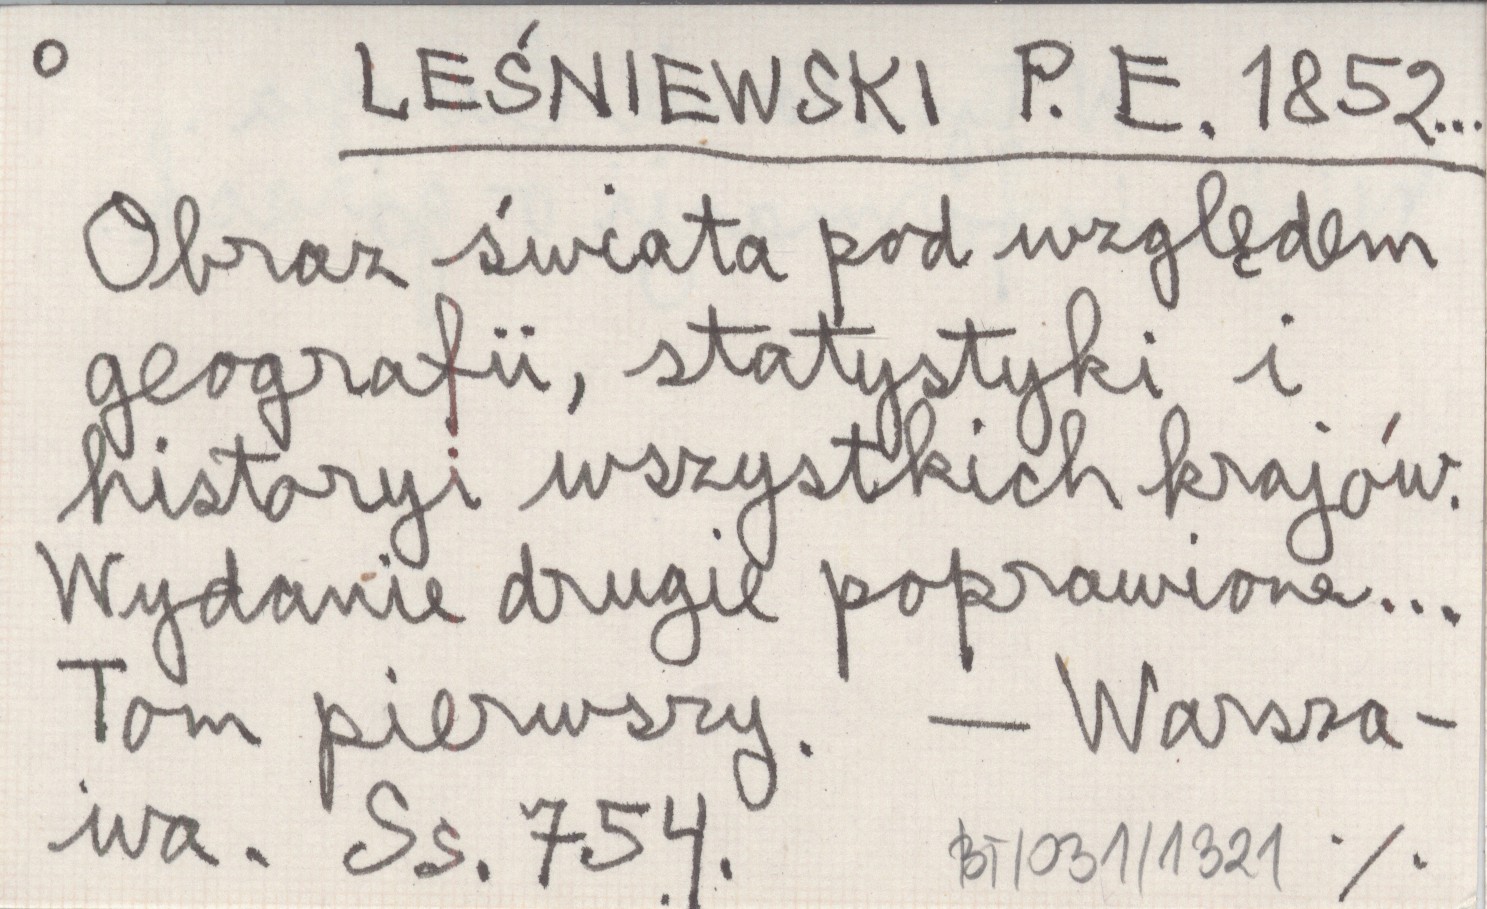 o LEŚNIEWSKI P. E. 1852...
Obraz świata pod względem
geografii, statystyki i
historyi wszystkich krajów.
Wydanie drugie poprawione...
Tom pierwszy. — Warsza-
wa. Ss. 754.
BT/031/1321 ·/·